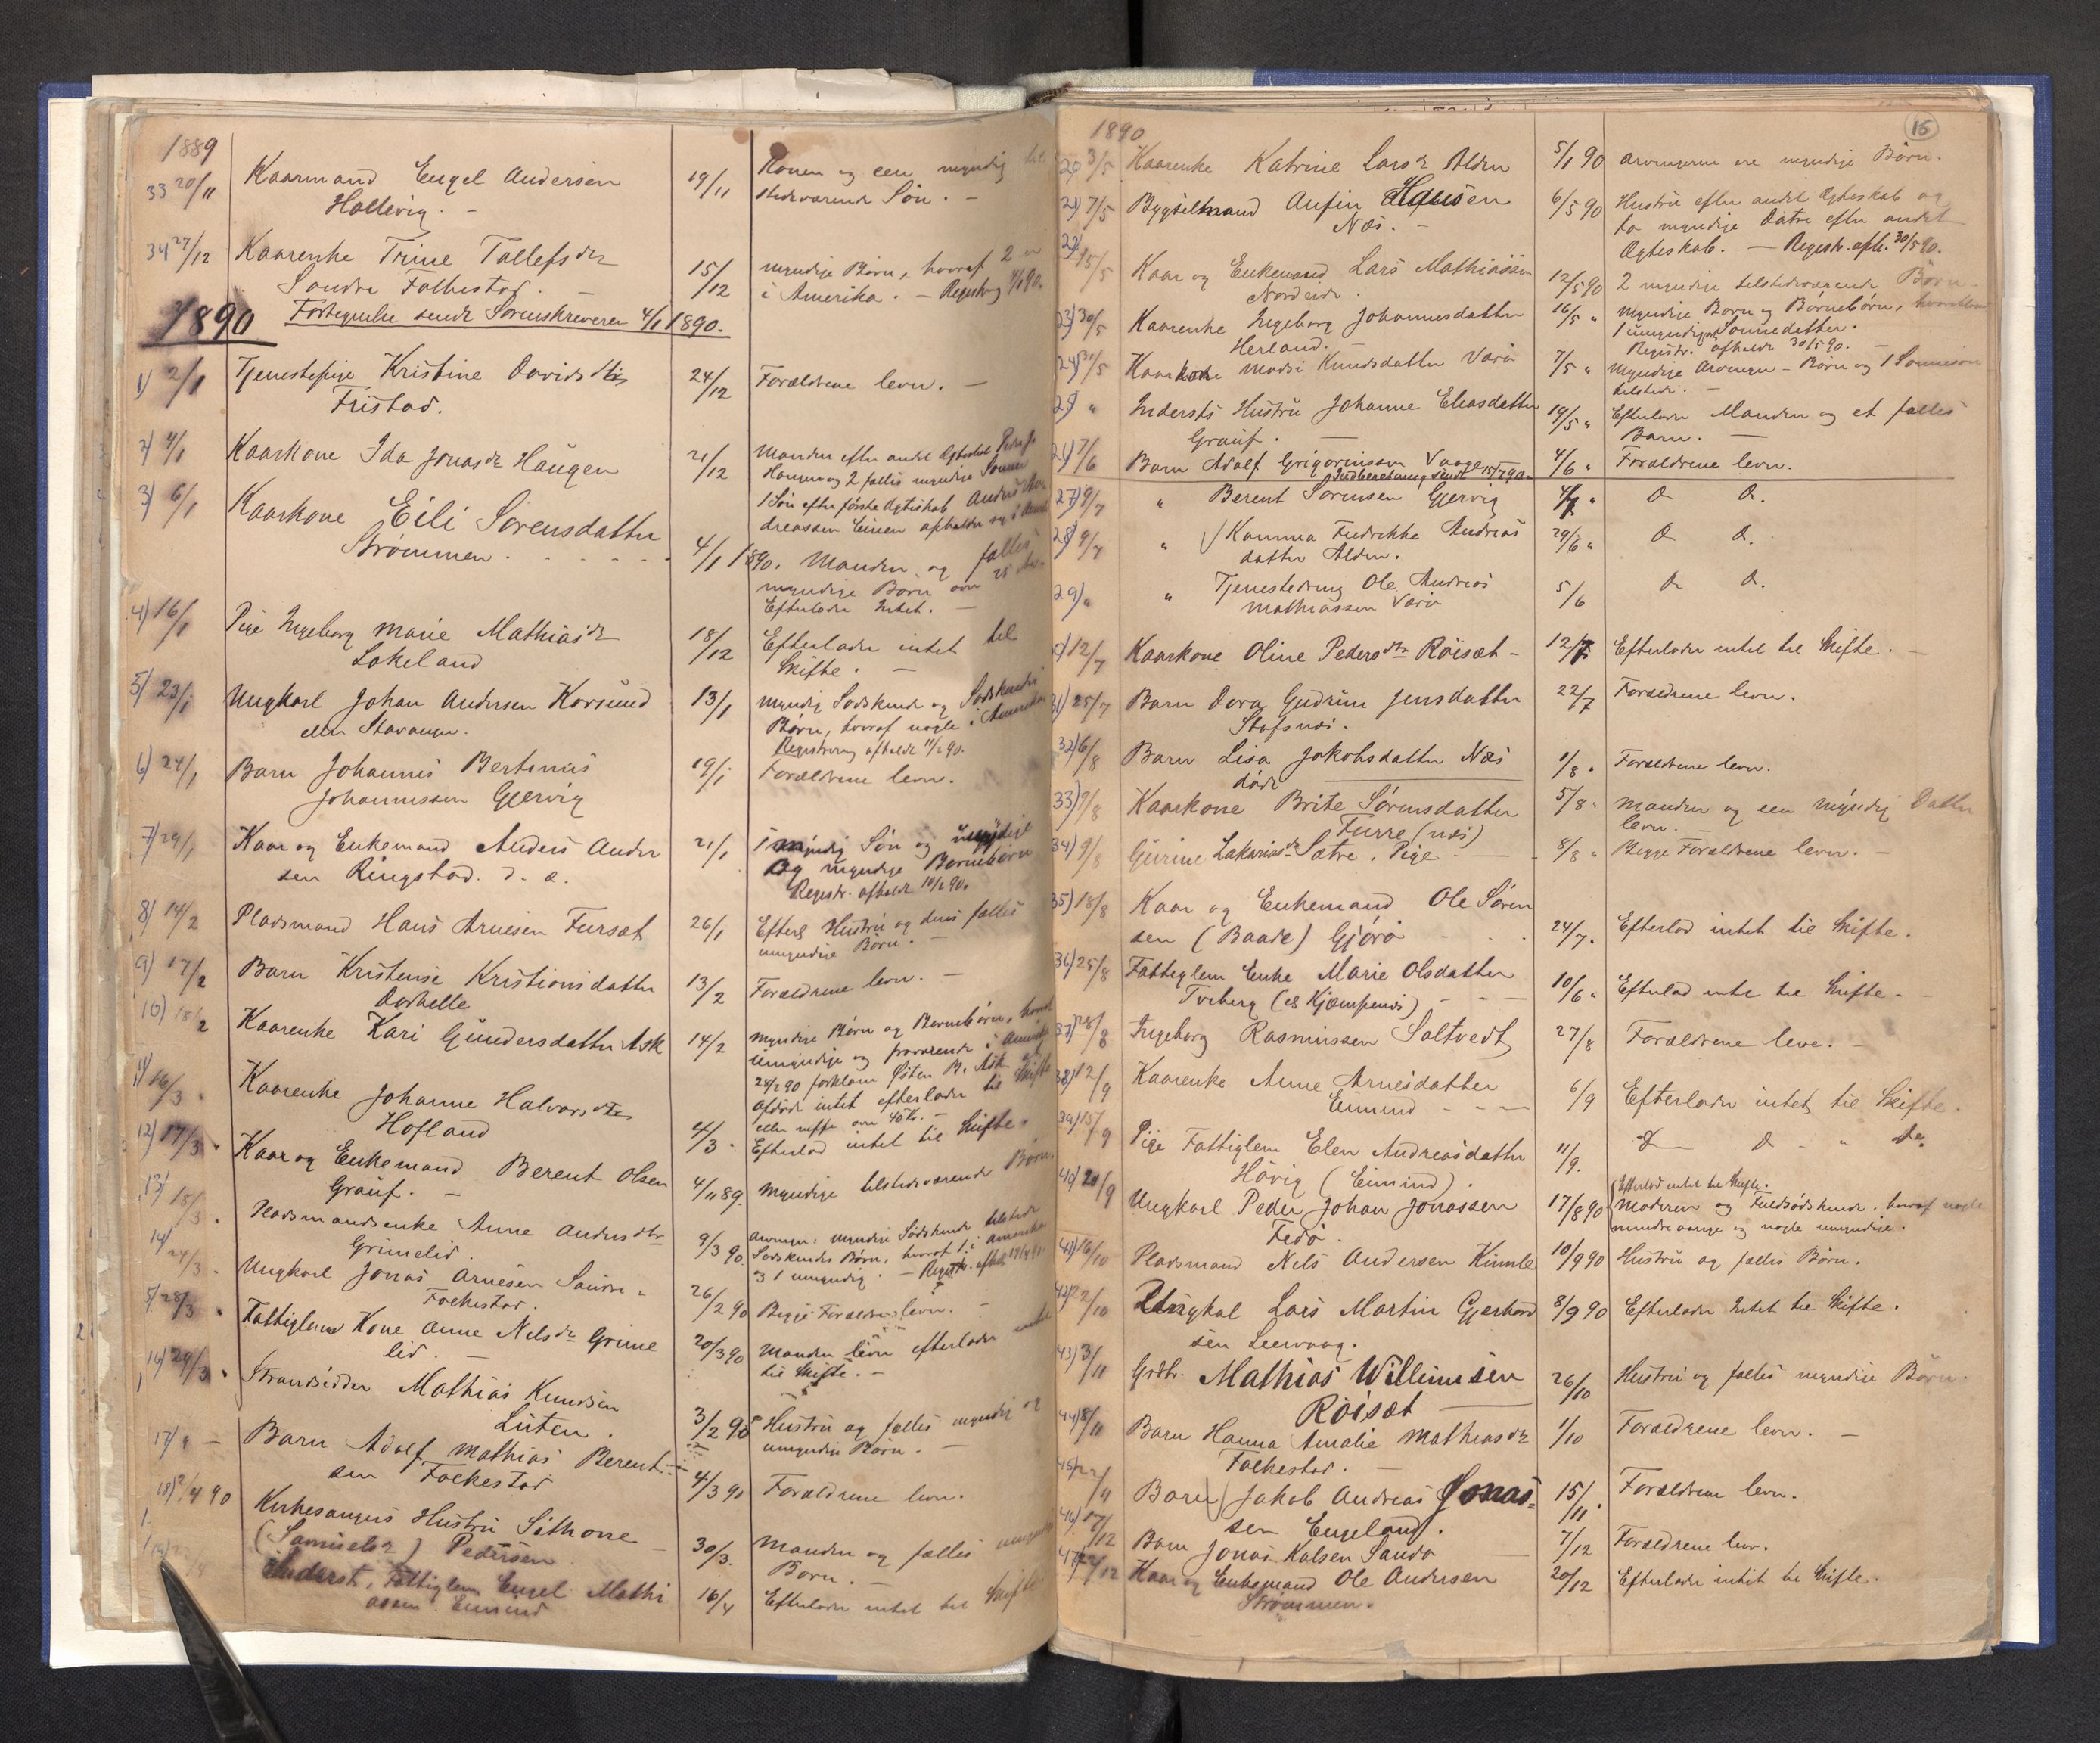 1889
33 20/11 Kaarmand Engel Andersen 19/11 Konen og een myndig
Hallevig. - stedværende Søn. -
34 27/12 Kaarenke Trine Tollefsdtr 15/12 myndige Børn, hvoraf 2
Søndre Folkestad. - i Amerika. - Registrering 4/1 90.
1890 Fortegnelse sendt Sorenskriveren 4/1 1890.
1) 2/1 Tjenestepige Kristine Davidsdtr 24/12 Forældrene lever. -
Fristad.
2) 4/1 Kaarkone Ida Jonasdr Haugen 21/12 Manden efter andet Ægteskab
Haugen og 2 fælles myndige Sønner
3) 6/1 Kaarkone Eili Sørensdatter 1 Søn efter første Ægteskab Anders
dreassen Eimen opholder sig i
Strømmen 4/1 1890. Manden og fælles
myndige Børn over 25
Efterlader Intet. -
4) 16/1 Pige Ingeborg Marie Mathiasdr 18/12 Efterlader intet til
Lokeland Skifte. -
5) 23/1 Ungkarl Johan Andersen Korsund 13/1 myndig Sødskende og Sødskendes
eller Stavanger. Børn, hvoraf nogle i Amerika
Registrering afholdt 11/2 90.
6) 24/1 Barn Johannes Bertinus 19/1 Forældrene lever.
Johannessen Gjervig
7) 29/1 Kaar og Enkemand Anders Ander 21/1 1 myndig Søn og umyndige
sen Ringstad. d. æ. og myndige Børnebørn
Registr. afholdt 10/2 90.
8) 14/2 Pladsmand Hans Arnesen Fursæt 26/1 Efterl. Hustru og deres fælles
umyndige Børn. -
9) 17/2 Barn Kristense Kristiansdatter 13/2 Forældrene lever. -
Dorhelle
10) 18/2 Kaarenke Kari Gundersdatter Ask 14/2 myndige Børn og Børnebørn,
umyndige og fraværende i Amerika
24/2 90 forklarer Østen B. Ask at
11) 16/3 Kaarenke Johanne Halvorsdtr afdøde intet efterlader til Skifte
Hofland 4/3 eller neppe over 40 Kr. -
Efterlod intet til Skifte.
12) 17/3 Kaar og Enkemand Berent Olsen 4/11 89. Myndige tilstedeværende Børn.
Grauf. -
13) 18/3 Pladsmandsenke Anne Andersdtr 9/3 90. Arvinger: myndige Sødskende tilstede
Grimelid. Sødskendes Børn, hvoraf 1 i Amerika
og 1 umyndig. - Registr. afholdt
14) 24/3 Ungkarl Jonas Arnesen Søndre 26/2 90 Begge Forældre lever. -
Folkestad.
15) 28/3 Fattiglem Kone Anne Nilsdr Grime 20/3 90 Manden lever efterlader intet
lid. - til Skifte. -
16) 29/3 Strandsidder Mathias Knudsen 3/2 90 Hustru og fælles myndig og
Luten. umyndige Børn. -
17) Barn Adolf Mathias Berent 4/3 90 Forældrene lever.
sen Folkestad
18) 4 90 Kirkesangers Hustru Sethone 30/3. Manden og fælles
(Samuelsdr) Pedersen Børn. -
Inderst, Fattiglem Engel Mathi 16/4 Efterlader intet til Skifte
assen Eimind
15
1890
20 3/5 Kaarenke Katrine Larsdr Alden 5/1 90 Arvingerne ere myndige Børn.
21) 7/5 Bygselmand Anfin Hansen 6/5 90 Hustru efter andet Ægteskab og
Næs. - to myndige Døtre efter andet
Ægteskab. - Registr. afh. 30/5 90.
22) 15/5 Kaar og Enkemand Lars Mathiassen 12/5 90 2 myndige tilstedeværende Børn -
Nordeide.
23) 30/5 Kaarenke Ingeborg Johannesdatter 16/5 " myndige Børn og Børnebørn, hvoriblandt
Herland. - 1 umyndig Sønnedatter.
Registr. afholdt 30/5 90. -
24) 31/5 Kaarkone Madsi Knudsdatter Værø 7/5 " myndige Arvinger - Børn og 1 Sønnesøn
tilstede. -
25) " Indersts Hustru Johanne Eleasdatter 19/5 " Efterlader Manden og et fælles
Grauf. - Barn. -
26) 7/6 Barn Adolf Grigoriussen Vaage 4/6 " Forældrene lever.
Indberetning sendt 15/7 90.
27) 9/7 " Berent Sørensen Gjervig 4/7 " Do Do.
28) 9/7 " Kamma Fredrikke Andreas 29/6 " Do Do.
datter Alden.
29) " " Tjenestedreng Ole Andreas 5/6 Do Do.
Mathiassen Værø
30) 12/7 Kaarkone Oline Pedersdtr Røisæt - 12/7 Efterlader intet til Skifte. -
31) 25/7 Barn Dora Gudrun Jensdatter 22/7 Forældrene lever.
Stafsnæs.
32) 6/8 Barn Lisa Jakobsdatter Næs 1/8 " Forældrene lever.
døde
33) 9/8 Kaarkone Brite Sørensdatter 5/8 " Manden og een myndig Datter
Furre (næs) lever. -
34) 9/8 Gurine Zakariasdr Sætre. Pige - 8/8 " Begge Forældrene lever. -
35) 18/8 Kaar og Enkemand Ole Søren
sen (Baade) Gjørø 24/7. Efterlod intet til Skifte.
36) 25/8 Fattiglem Enke Marie Olsdatter 10/6 " Efterlod intet til Skifte. -
Torberg (el Kjempenes) - - -
37) 28/8 Ingeborg Rasmussen Saltvedt 27/8 Forældrene leve. -
38) 12/9 Kaarenke Anne Arnesdatter 6/9 Efterlader intet til Skifte.
Eimind - - -
39) 15/9 Pige Fattiglem Elen Andreasdatter 11/9. Do Do - " Do
Høvig (Eimind).
Efterlod intet til Skifte.
40) 20/9 Ungkarl Peder Johan Jonassen 17/8 90 Moderen og Fuldsødskende, hvoraf nogle
Fedø. mindreaarige og nogle umyndige.
41) 16/10 Pladsmand Nils Andersen Kumle 10/9 90 Hustru og fælles Børn.
42) 22/10 Ungkal Lars Martin Gjerhard 8/9 90 Efterlader Intet til Skifte.
sen Leervaag.
43) 3/11 Grdbr. Mathias Willumsen 26/10 Hustru og fælles myndige Børn.
Røisæt
44) 8/11 Barn Hanna Amalie Mathiasdr 1/10 Forældrene lever. -
Folkestad. -
45) 22/11 Barn Jakob Andreas Jonas= 15/11. Forældrene lever.
sen Engeland.
46) 17/12 Barn Jonas Kalsen Sandø 7/12 Forældrene lever.
47) 22/12 Kaar og Enkemand Ole Andersen 20/12 Efterlader intet til Skifte.
Strømmen.